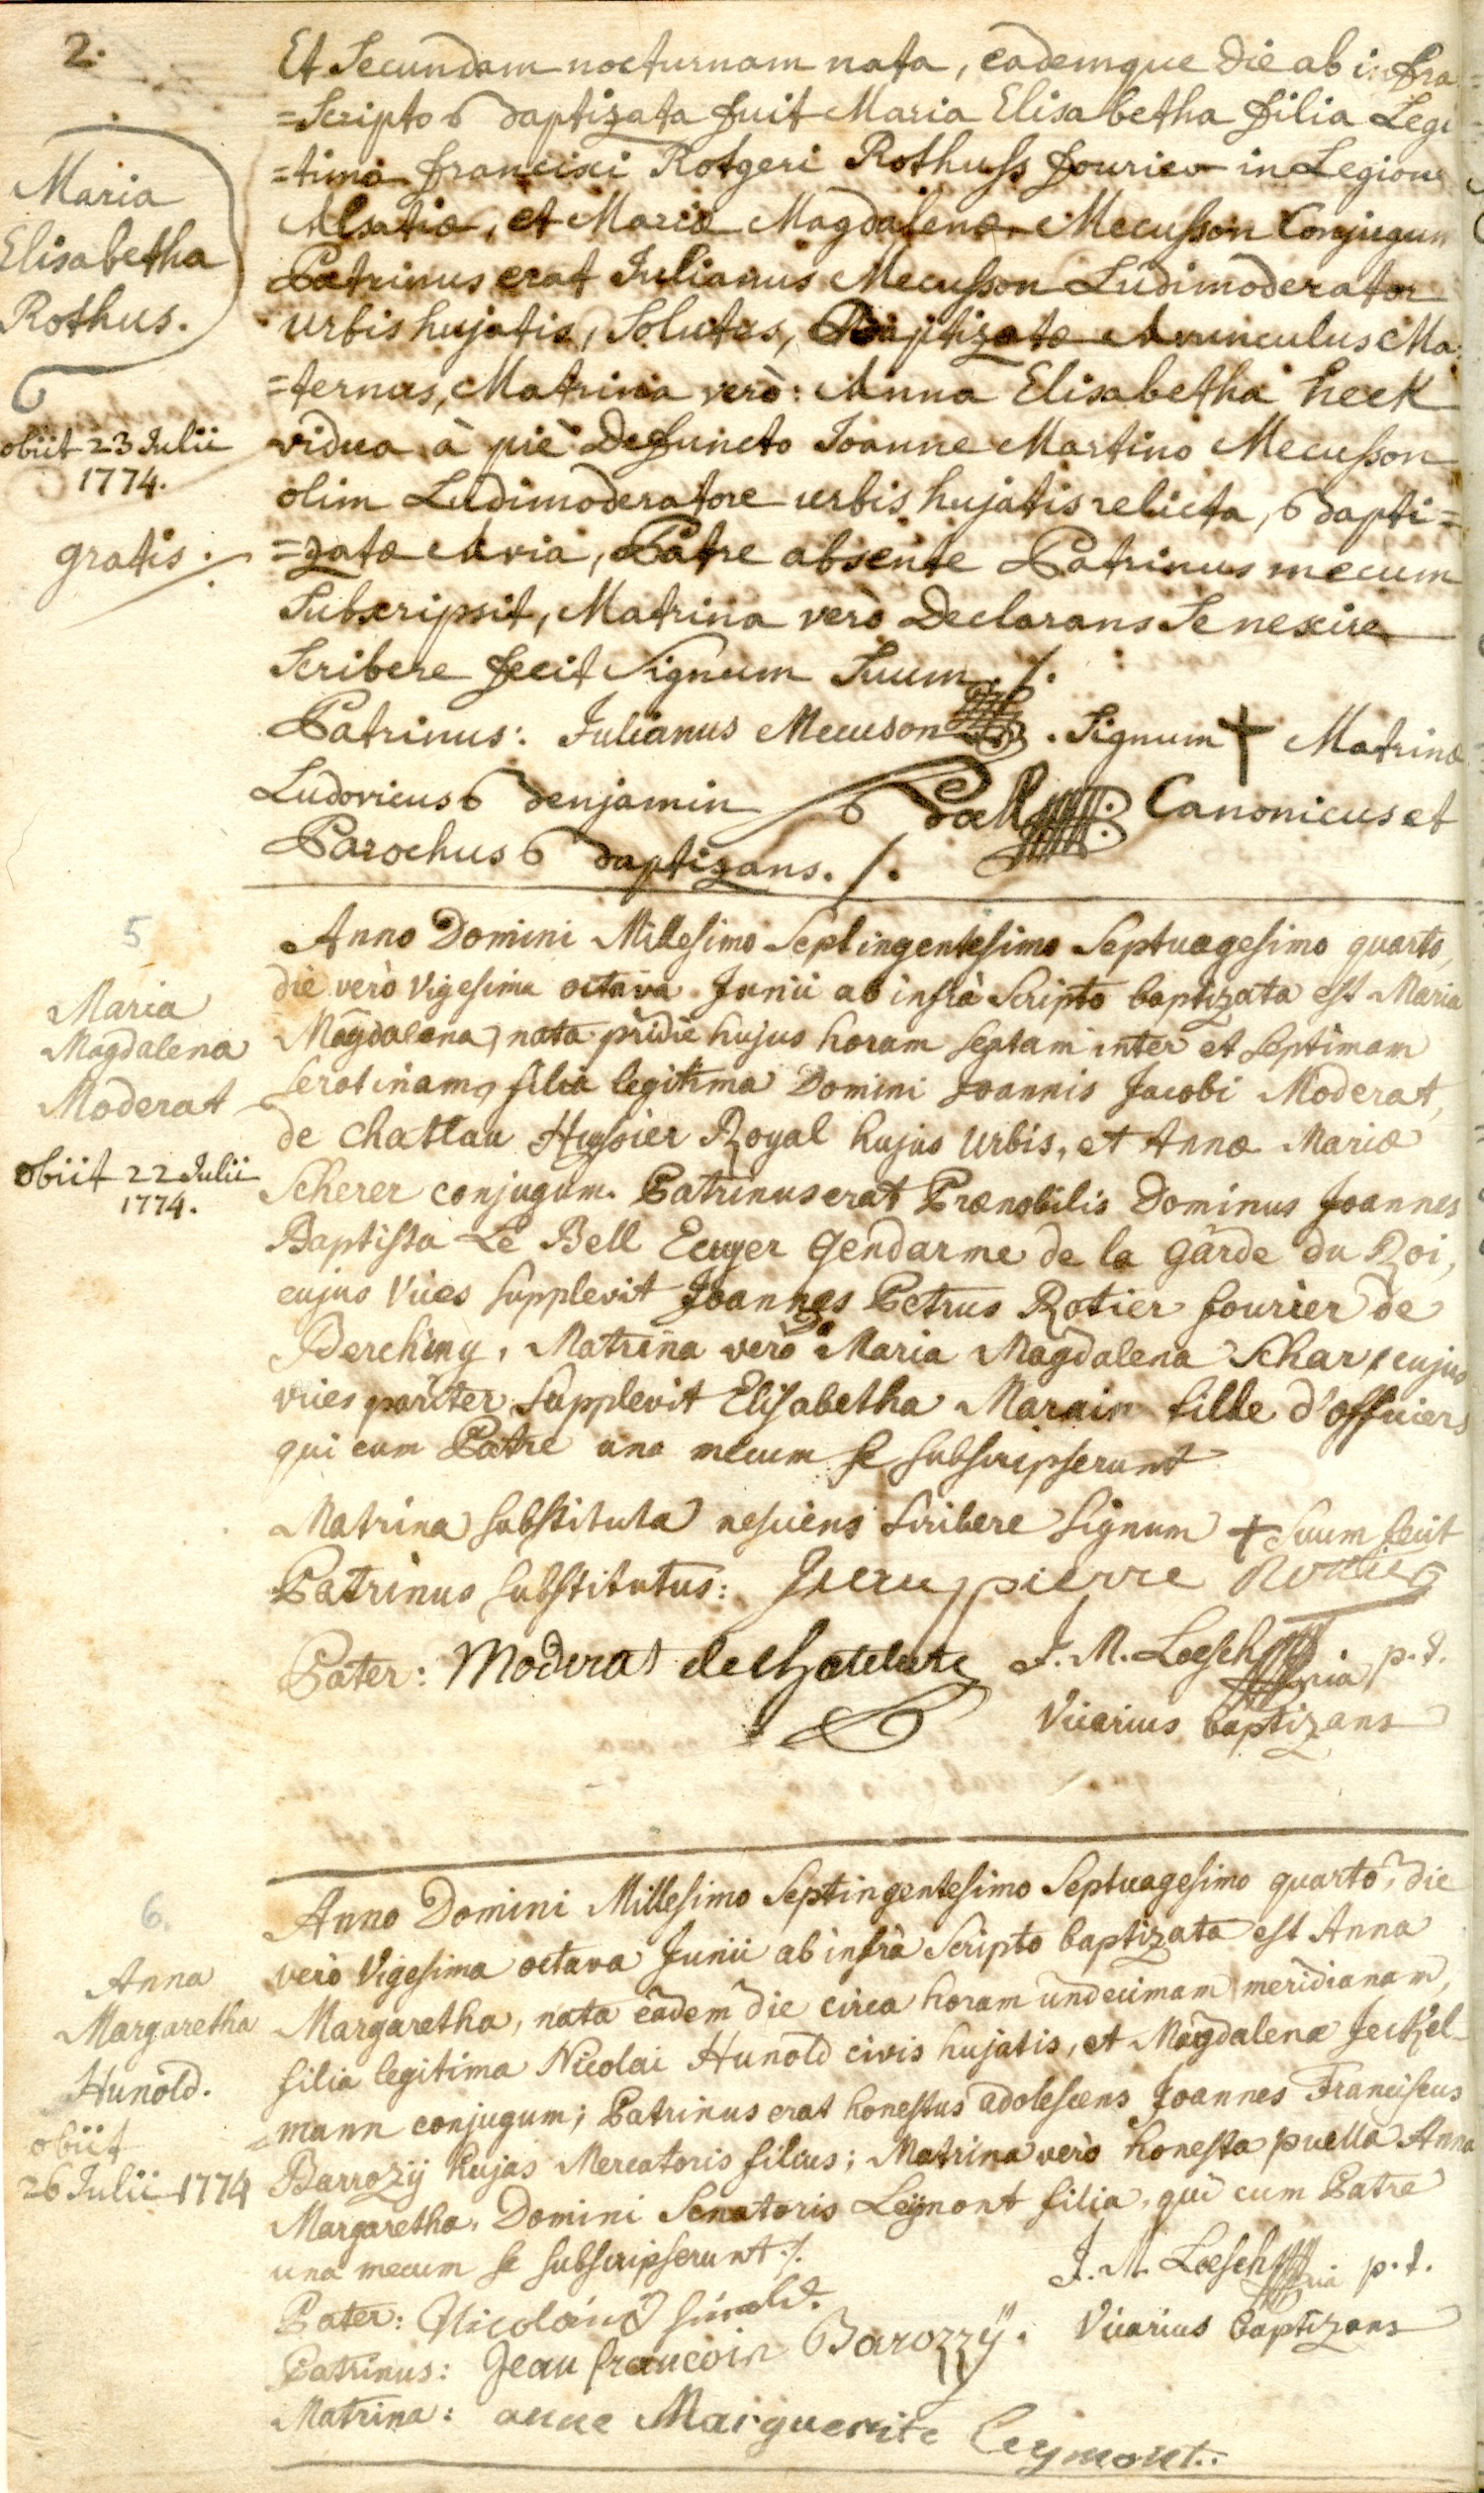 2.
Et Secundam nocturnam nata, eademque die ab infra
=Scripto Baptizata fuit Maria Elisabetha filia Legi
=tima francisci Rotgeri Rothuss fourier in Legione
Alsatiæ, et Mariæ Magdalenæ Mecusson Conjugum
Patrinus erat Julianus Mecusson Ludimoderator
urbis hujatis, Solutus, Baptizatæ Avunculus Ma
=ternus, Matrina verò: Anna Elisabetha heck
vidua à piè Defuncto Joanne Martino Mecusson
olim Ludimoderatore urbis hujatis relicta, Bapti=
=zatæ Avia, Patre absente Patrinus mecum
Subscripsit, Matrina verò Declarans Se nescire
Scribere fecit Signum Suum ./.
Patrinus: Julianus Mecuson . Signum + Matrinæ
Ludovicus Benjamin Ball Canonicus et
Parochus Baptizans. /.
Maria
Elisabetha
Rothus.
obiit 23 Julii
1774.
gratis.
5
Maria
Magdalena
Moderat
obiit 22 Julii
1774.
Anno Domini Millesimo Septingentesimo Septuagesimo quarto,
die verò Vigesima octava Junii ab infrà Scripto baptizata est Maria
Magdalena, nata pridie hujus horam sextam inter et septimam
serotinam, filia legitima Domini Joannis Jacobi Moderat,
de chatlau Hussier Royal hujus Urbis, et Annæ Mariæ
Scherer conjugum. Patrinus erat Prænobilis Dominus Joannes
Baptista Le Bell Ecuyer Gendarme de la Garde du Roi,
cujus Vices supplevit Joannes Petrus Rotier fourier de
Berchiny, Matrina verò Maria Magdalena Schar, cujus
vices pariter supplevit Elisabetha Marain fille d'officiers
qui cum Patre una mecum se subscripserunt
Matrina substituta nesciens scribere signum + suum fecit
Patrinus substitutus: Jean pierre Rottier
Pater: Moderat J. M. Loesch p.t.
Vicarius baptizans
6.
Anna
Margaretha
Hunold.
obiit
26 Julii 1774
Anno Domini Millesimo Septingentesimo Septuagesimo quarto, die
verò Vigesima octava Junii ab infrà Scripto baptizata est Anna
Margaretha, nata eâdem die circa horam undecimam meridianam,
filia legitima Nicolai Hunold civis hujatis, et Magdalenæ Jechel-
=mann conjugum; Patrinus erat honestus adolescens Joannes Franciscus
Barrozij hujas Mercatoris filius; Matrina verò honesta puella Anna
Margaretha, Domini Senatoris Leijmont filia, qui cum Patre
una mecum se subscripserunt ./.
J. M. Loesch p.t.
Pater: Nicolaus hunold.
Vicarius baptizans
Patrinus: Jean francois Barozzÿ.
Matrina: anne Marguerite Leymont..